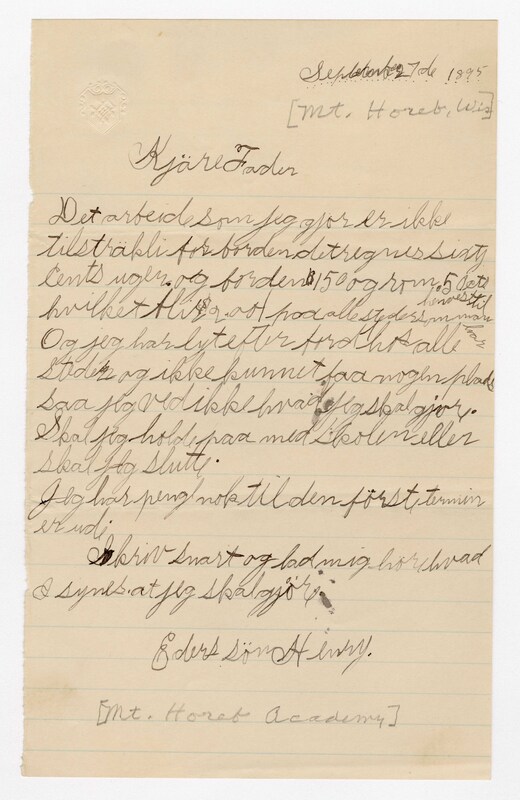 September 27de 1895
[Mt. Horeb, Wis]
Kjäre Fader
Det arbeide som jeg gjor er ikke
tilsträkli for borden det regnes sixty
Cents uger. og borden $150 og rom. 5
hvilket bliv $2.00 paa alle steder som man
Og jeg har lyt efter for hos alle
steder og ikke kunnet faa nogen plads
saa jeg ved ikke hvad jeg skal gjor.
Skal jeg holde paa med skolen eller
skal jeg slutte.
Jeg har peng nok til den först termin
er udi
Skriv snart og lad mig hore hvad
I synes at jeg skal gjör.
Eders sön Henry.
[Mt. Horeb Academy]